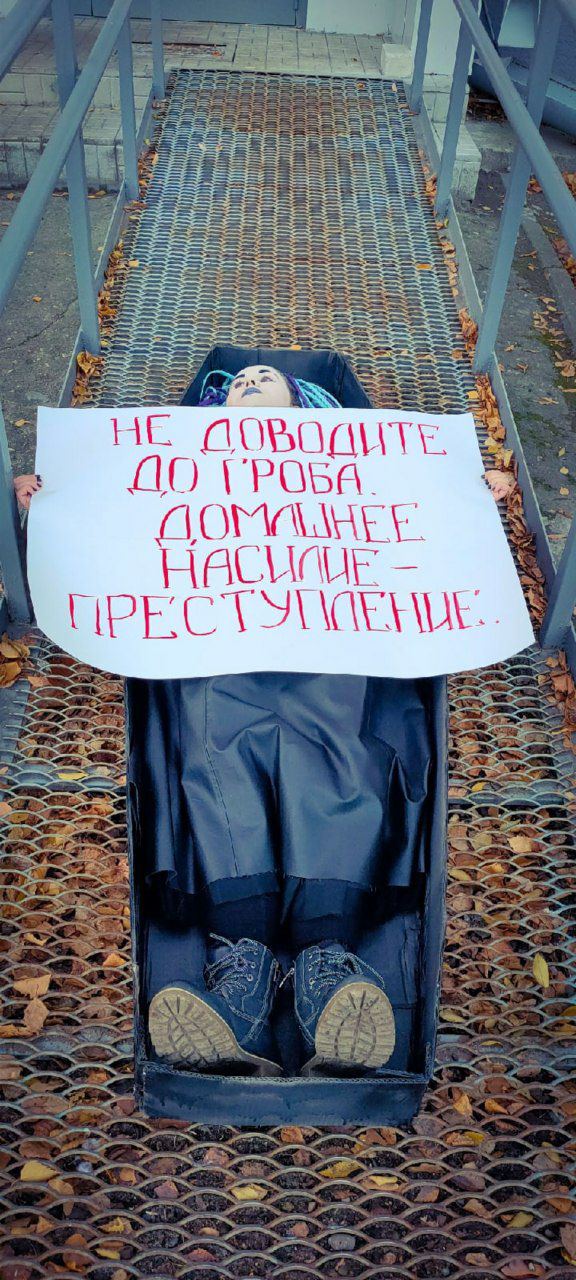 НЕ ДОВОДИТЕ
ДО ГРОБА.
ДОМАШНЕЕ
НАСИЛИЕ –
ПРЕСТУПЛЕНИЕ..